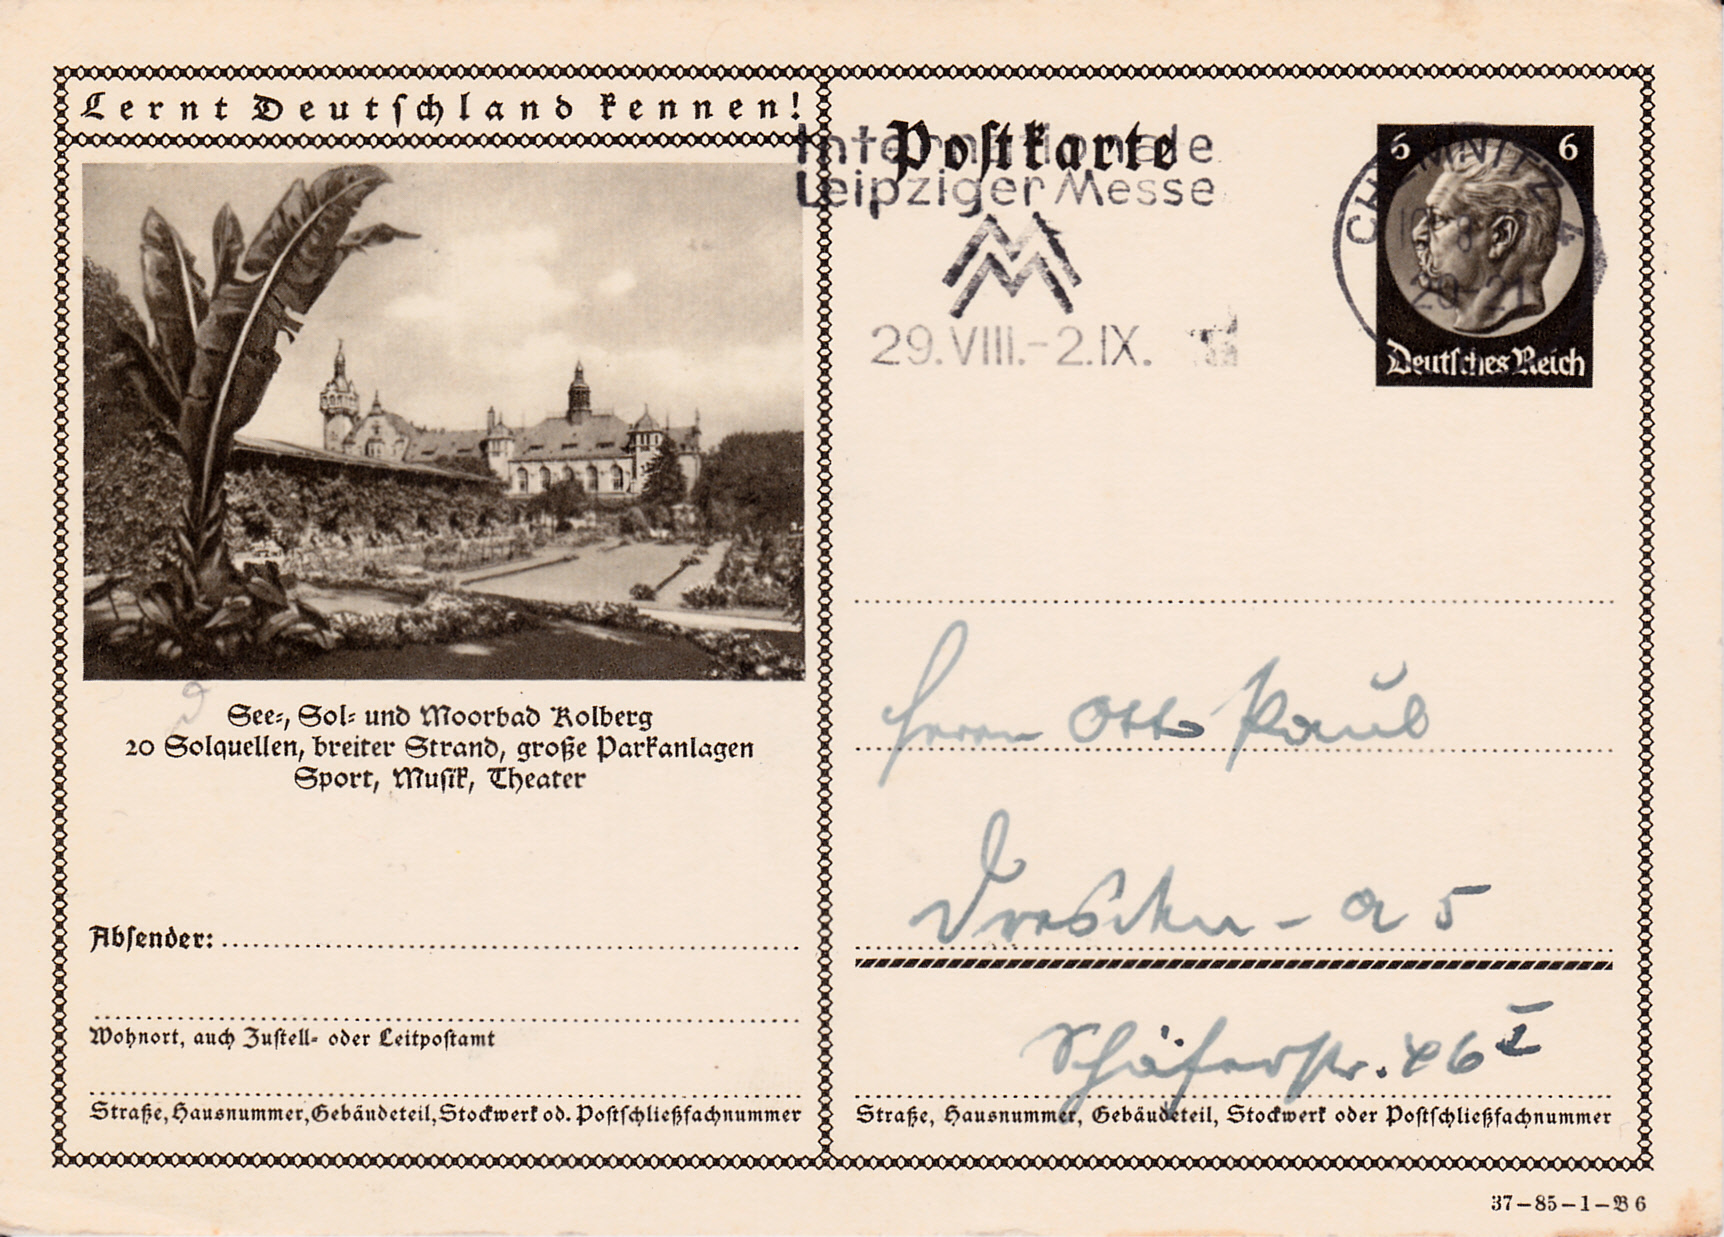 Lernt Deutschland kennen!
Postkarte
Internationale
Leipziger Messe
29.VIII.-2.IX.
CHEMNITZ 4
20-21
6 6
Deutsches Reich
See-, Sol- und Moorbad Kolberg
20 Solquellen, breiter Strand, große Parkanlagen
Sport, Musik, Theater
Absender:
Wohnort, auch Zustell- oder Leitpostamt
Straße, Hausnummer, Gebäudeteil, Stockwerk od. Postschließfachnummer
Herrn Otto Paul
Dresden - A 5
Schäferstr. 46 I
Straße, Hausnummer, Gebäudeteil, Stockwerk oder Postschließfachnummer
37-85-1-B 6